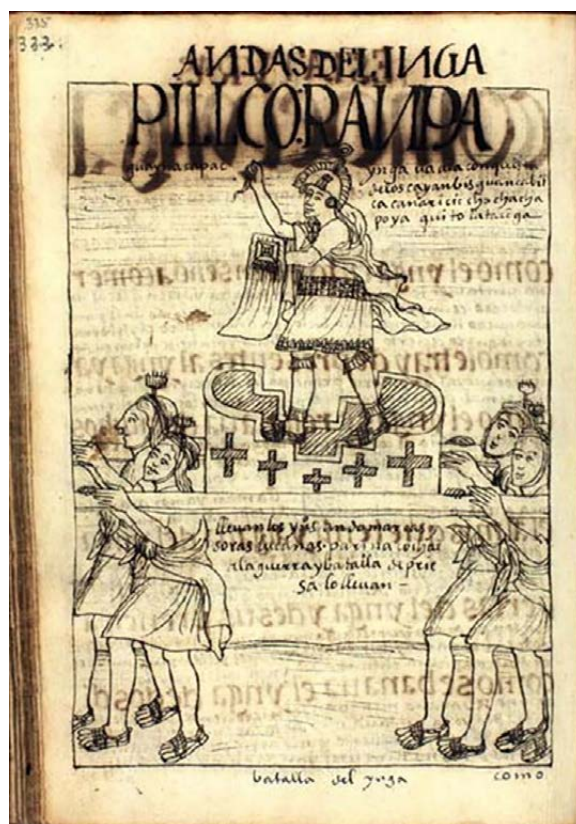 335
333.
ANDAS DEL INGA
PILLCORANPA
guayna capac
ynga ua a la conquista
de los cayanbis guancabil
ca canari cicho chacha
poya quito latacuga
lleuan los ynºs andamarcas y
soras lucanas parinacochas
a la guerra y batalla de prie
sa lo lleuan –
batalla del ynga
como